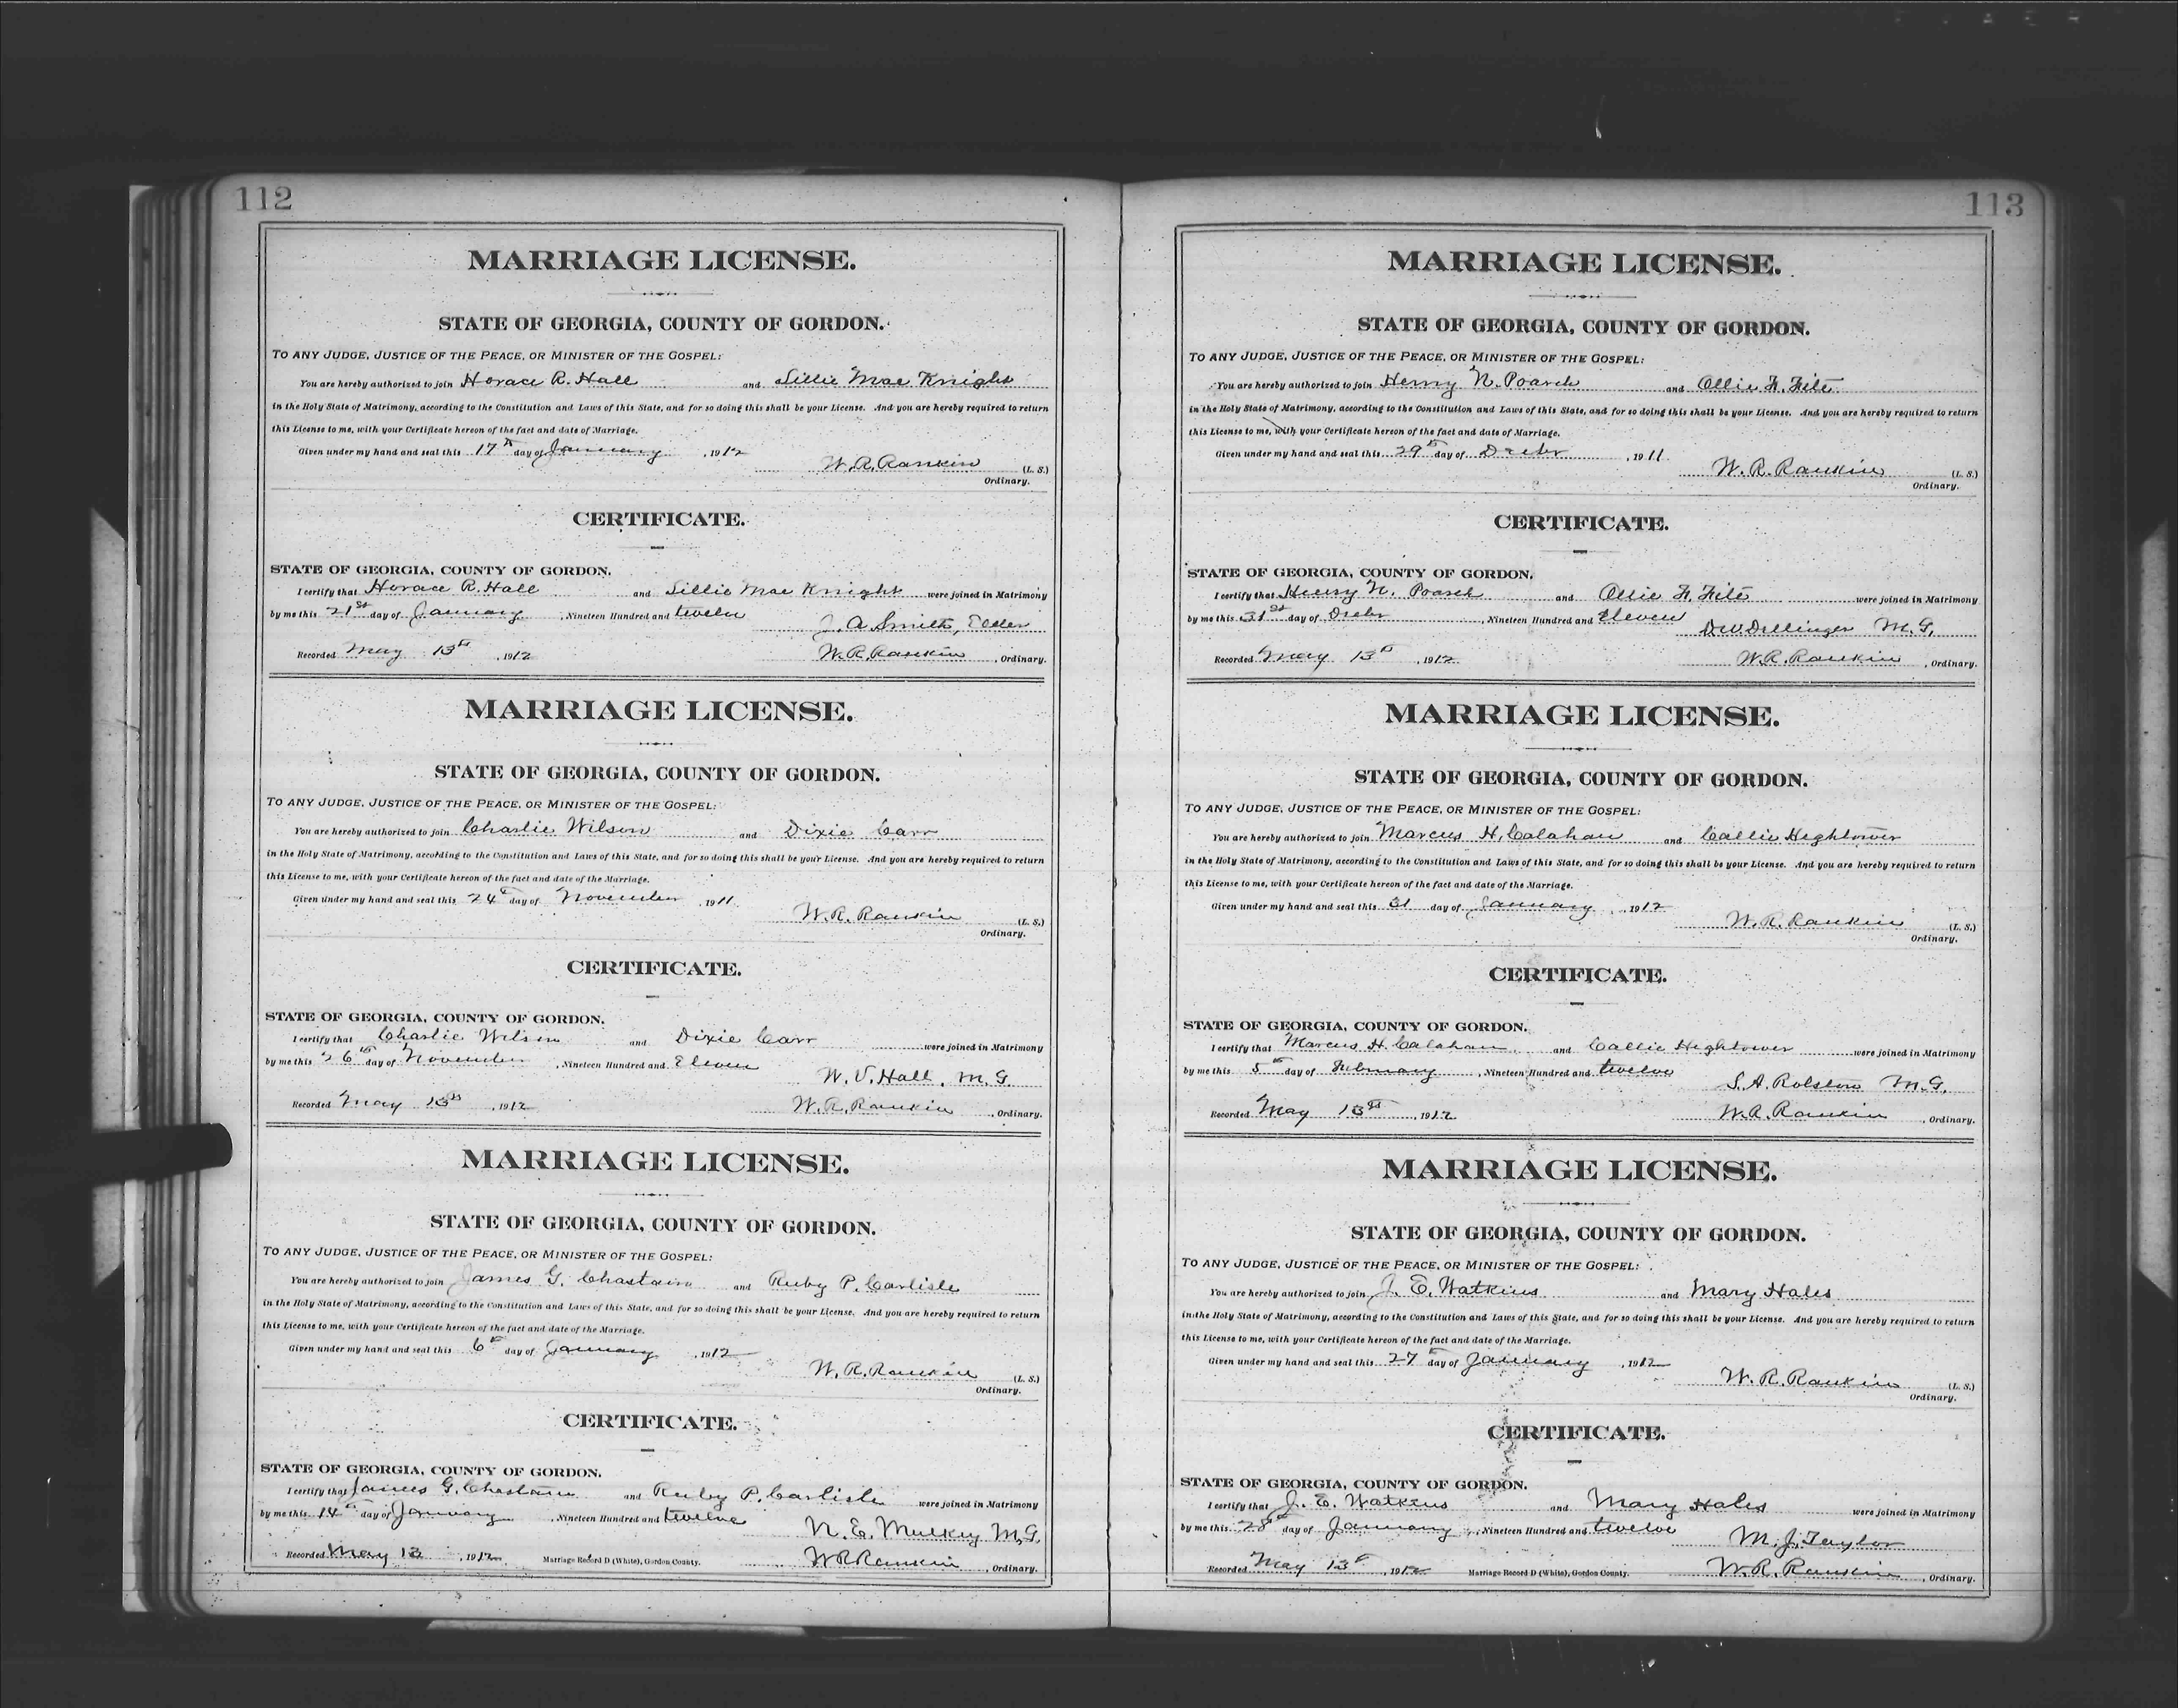 112
MARRIAGE LICENSE.
STATE OF GEORGIA, COUNTY OF GORDON.
TO ANY JUDGE, JUSTICE OF THE PEACE, OR MINISTER OF THE GOSPEL:
You are hereby authorized to join Horace R. Hall and Lillie Mae Knight
in the Holy State of Matrimony, according to the Constitution and Laws of this State, and for so doing this shall be your License. And you are hereby required to return
this License to me, with your Certificate hereon of the fact and date of Marriage.
Given under my hand and seal this 17th day of January, 1912
W. R. Rankin (L. S.)
Ordinary.
CERTIFICATE.
STATE OF GEORGIA, COUNTY OF GORDON.
I certify that Horace R. Hall and Lillie Mae Knight were joined in Matrimony
by me this 21st day of January, Nineteen Hundred and twelve
J. A. Smith, Elder
Recorded May 13th, 1912 W. R. Rankin, Ordinary.
MARRIAGE LICENSE.
STATE OF GEORGIA, COUNTY OF GORDON.
TO ANY JUDGE, JUSTICE OF THE PEACE, OR MINISTER OF THE GOSPEL:
You are hereby authorized to join Charlie Wilson and Dixie Carr
in the Holy State of Matrimony, according to the Constitution and Laws of this State, and for so doing this shall be your License. And you are hereby required to return
this License to me, with your Certificate hereon of the fact and date of the Marriage.
Given under my hand and seal this 24th day of November, 1911
W. R. Rankin (L. S.)
Ordinary.
CERTIFICATE.
STATE OF GEORGIA, COUNTY OF GORDON.
I certify that Charlie Wilson and Dixie Carr were joined in Matrimony
by me this 26th day of November, Nineteen Hundred and Eleven
W. V. Hall, M. G.
Recorded May 13th, 1912 W. R. Rankin, Ordinary.
MARRIAGE LICENSE.
STATE OF GEORGIA, COUNTY OF GORDON.
TO ANY JUDGE, JUSTICE OF THE PEACE, OR MINISTER OF THE GOSPEL:
You are hereby authorized to join James G. Chastain and Ruby P. Carlisle
in the Holy State of Matrimony, according to the Constitution and Laws of this State, and for so doing this shall be your License. And you are hereby required to return
this License to me, with your Certificate hereon of the fact and date of the Marriage.
Given under my hand and seal this 6th day of January, 1912
W. R. Rankin (L. S.)
Ordinary.
CERTIFICATE.
STATE OF GEORGIA, COUNTY OF GORDON.
I certify that James G. Chastain and Ruby P. Carlisle were joined in Matrimony
by me this 14th day of January, Nineteen Hundred and twelve
N. E. Mulkey M.G.
Recorded May 13, 1912 Marriage Record D (White), Gordon County. W R Rankin, Ordinary.
113
MARRIAGE LICENSE.
STATE OF GEORGIA, COUNTY OF GORDON.
TO ANY JUDGE, JUSTICE OF THE PEACE, OR MINISTER OF THE GOSPEL:
You are hereby authorized to join Henry N. Poarch and Ollie F. Fite
in the Holy State of Matrimony, according to the Constitution and Laws of this State, and for so doing this shall be your License. And you are hereby required to return
this License to me, with your Certificate hereon of the fact and date of Marriage.
Given under my hand and seal this 29th day of Decbr, 1911
W. R. Rankin (L. S.)
Ordinary.
CERTIFICATE.
STATE OF GEORGIA, COUNTY OF GORDON.
I certify that Henry N. Poarch and Ollie F. Fite were joined in Matrimony
by me this 31st day of Decbr, Nineteen Hundred and Eleven
D W Dillinger M. G.
Recorded May 13th, 1912 W. R. Rankin, Ordinary.
MARRIAGE LICENSE.
STATE OF GEORGIA, COUNTY OF GORDON.
TO ANY JUDGE, JUSTICE OF THE PEACE, OR MINISTER OF THE GOSPEL:
You are hereby authorized to join Marcus H. Calahan and Callie Hightower
in the Holy State of Matrimony, according to the Constitution and Laws of this State, and for so doing this shall be your License. And you are hereby required to return
this License to me, with your Certificate hereon of the fact and date of the Marriage.
Given under my hand and seal this 31 day of January, 1912
W. R. Rankin (L. S.)
Ordinary.
CERTIFICATE.
STATE OF GEORGIA, COUNTY OF GORDON.
I certify that Marcus H. Calahan and Callie Hightower were joined in Matrimony
by me this 5th day of February, Nineteen Hundred and twelve
S. A. Rolston M. G.
Recorded May 13th, 1912 W. R. Rankin, Ordinary.
MARRIAGE LICENSE.
STATE OF GEORGIA, COUNTY OF GORDON.
TO ANY JUDGE, JUSTICE OF THE PEACE, OR MINISTER OF THE GOSPEL:
You are hereby authorized to join J. E. Watkins and Mary Hales
in the Holy State of Matrimony, according to the Constitution and Laws of this State, and for so doing this shall be your License. And you are hereby required to return
this License to me, with your Certificate hereon of the fact and date of the Marriage.
Given under my hand and seal this 27th day of January, 1912
W. R. Rankin (L. S.)
Ordinary.
CERTIFICATE.
STATE OF GEORGIA, COUNTY OF GORDON.
I certify that J. E. Watkins and Mary Hales were joined in Matrimony
by me this 28th day of January, Nineteen Hundred and twelve
M. J. Taylor
Recorded May 13th, 1912 Marriage Record D (White), Gordon County. W. R. Rankin, Ordinary.